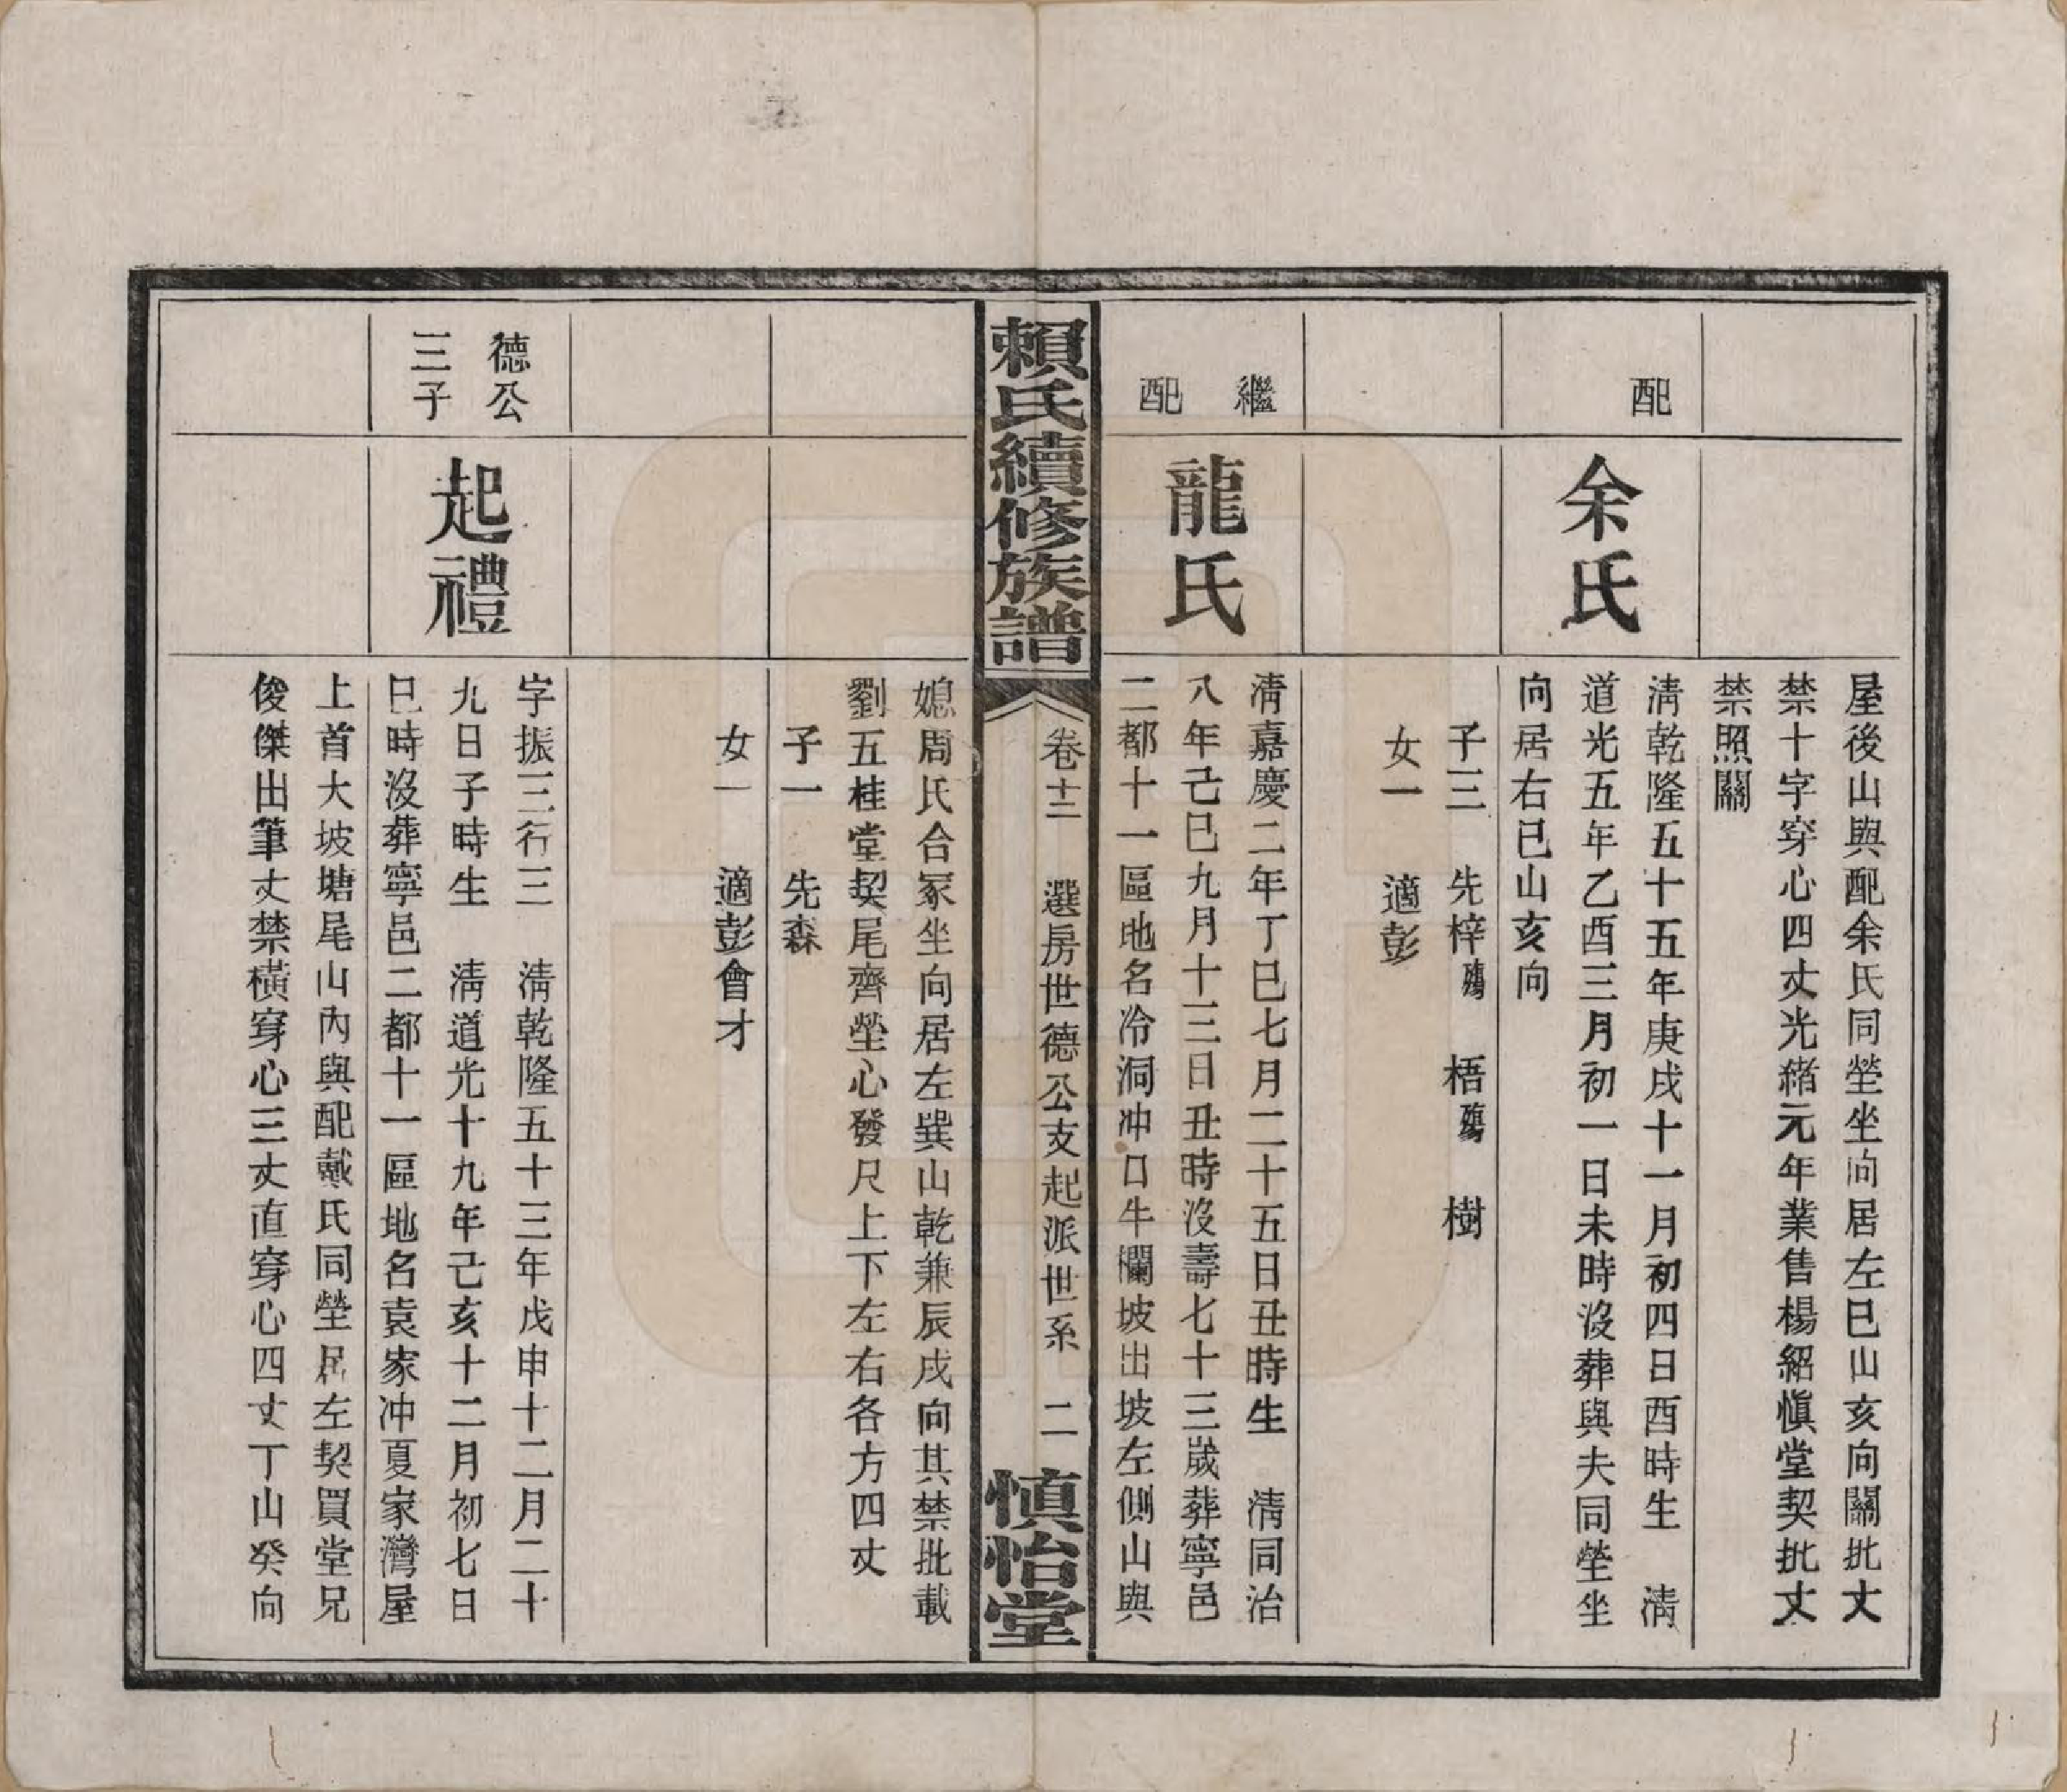 屋後山與配余氏同塋坐向居左巳山亥向關批丈
禁十字穿心四丈光緒元年業售楊紹愼堂契批丈
禁照關
配
余氏
淸乾隆五十五年庚戌十一月初四日酉時生 淸
道光五年乙酉三月初一日未時沒葬與夫同塋坐
向居右巳山亥向
子三 先梓殤 梧殤 樹
女一 適彭
繼配
龍氏
淸嘉慶二年丁巳七月二十五日丑時生 淸同治
八年己巳九月十三日丑時沒壽七十三歲葬寧邑
二都十一區地名冷洞冲口牛欄坡出坡左側山與
賴氏續修族譜
卷十二 選房世德公支起派世系 二
愼怡堂
媳周氏合冢坐向居左巽山乾兼辰戌向其禁批載
劉五桂堂契尾齊塋心發尺上下左右各方四丈
子一 先森
女一 適彭會才
德公
三子
起禮
字振三行三 淸乾隆五十三年戊申十二月二十
九日子時生 淸道光十九年己亥十二月初七日
巳時沒葬寧邑二都十一區地名袁家冲夏家灣屋
上首大坡塘尾山內與配戴氏同塋居左契買堂兄
俊傑出筆丈禁橫穿心三丈直穿心四丈丁山癸向